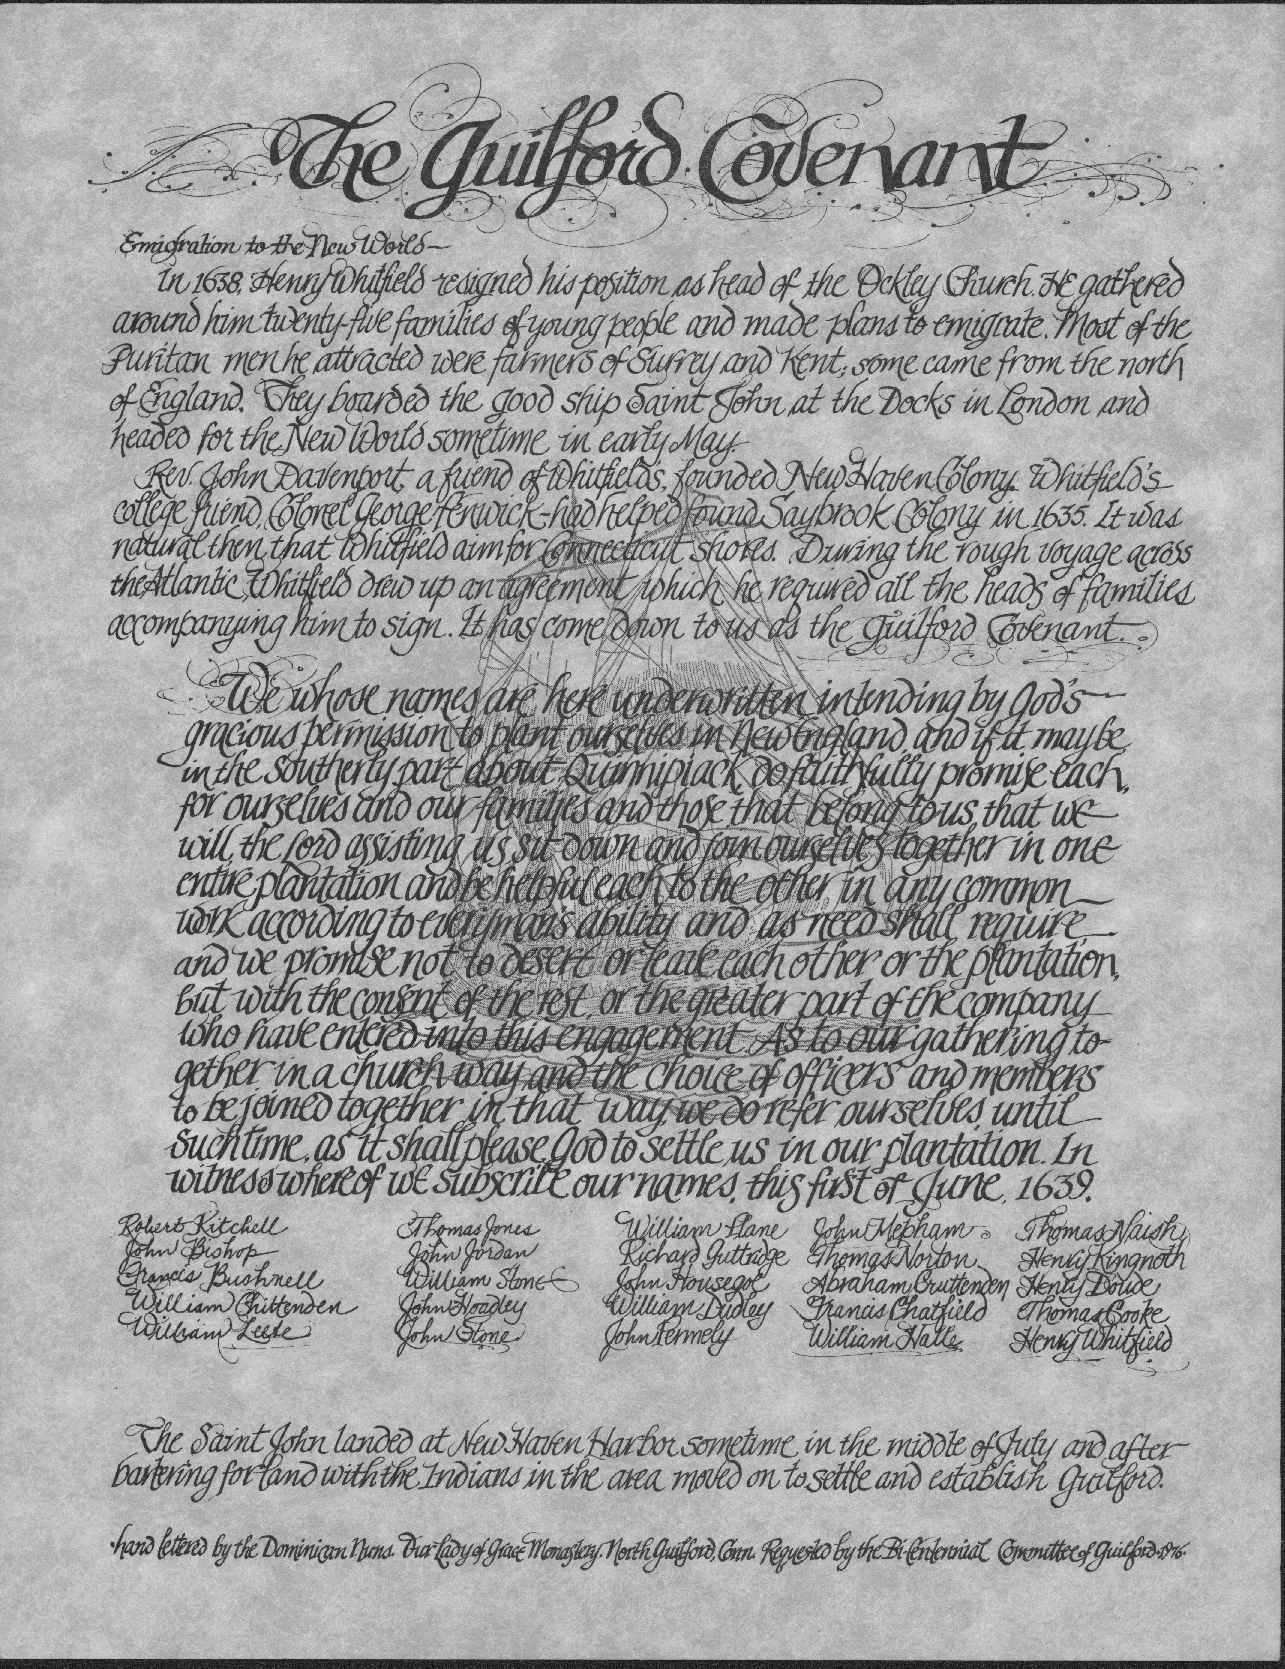 The Guilford Covenant
Emigration to the New World—
In 1638, Henry Whitfield resigned his position as head of the Ockley Church. He gathered
around him twenty-five families of young people and made plans to emigrate. Most of the
Puritan men he attracted were farmers of Surrey and Kent; some came from the north
of England. They boarded the good ship Saint John at the Docks in London and
headed for the New World sometime in early May.
Rev. John Davenport, a friend of Whitfield's, founded New Haven Colony. Whitfield's
college friend, Colonel George Fenwick-had helped found Saybrook Colony in 1635. It was
natural then that Whitfield aim for Connecticut shores. During the rough voyage across
the Atlantic, Whitfield drew up an agreement which he required all the heads of families
accompanying him to sign. It has come down to us as the Guilford Covenant.
We whose names are here underwritten intending by God's
gracious permission to plant ourselves in New England, and if it may be,
in the southerly part about Quinnipiack, do faithfully promise each,
for ourselves and our families and those that belong to us, that we
will, the Lord assisting us sit down and join ourselves together in one
entire plantation and be helpful each to the other in any common
work according to every man's ability and as need shall require
and we promise not to desert or leave each other or the plantation,
but with the consent of the rest, or the greater part of the company
who have entered into this engagement. As to our gathering to-
gether in a church way and the choice of officers and members
to be joined together in that way, we do refer ourselves, until
such time, as it shall please God to settle us in our plantation. In
witness whereof we subscribe our names, this first of June, 1639.
Robert Kitchell Thomas Jones William Plane John Mepham Thomas Naish
John Bishop John Jordan Richard Guttridge Thomas Norton Henry Kingnoth
Francis Bushnell William Stone John Housegoe Abraham Cruttenden Henry Dowde
William Chittenden John Hoadley William Dudley Francis Chatfield Thomas Cooke
William Leete John Stone John Permely William Halle Henry Whitfield
The Saint John landed at New Haven Harbor sometime in the middle of July and after
bartering for land with the Indians in the area moved on to settle and establish Guilford.
·hand lettered by the Dominican Nuns. Our Lady of Grace Monastery. North Guilford, Conn. Requested by the Bi-Centennial Committee of Guilford·1976·